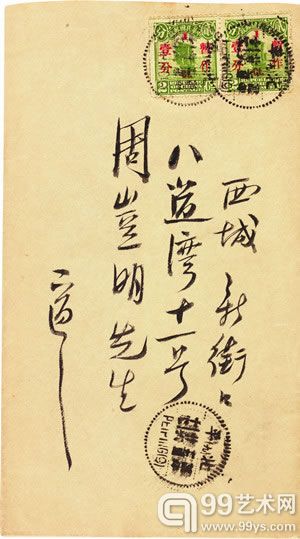 暫作
壹分
暫作
壹分
西城新街口
八道灣十一号
周豈明先生
PEIPING(9)
99艺术网
www.99ys.com